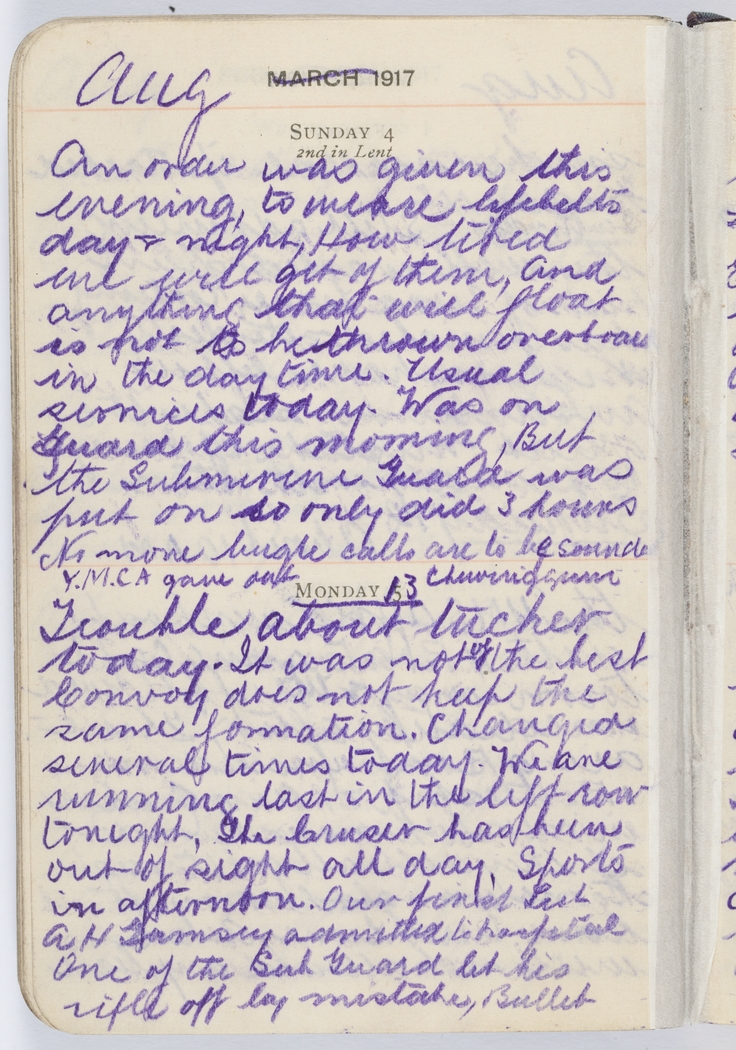 Aug MARCH 1917
SUNDAY 4
2nd in Lent
An order was given this
evening, to weare lifebelts
day & night, How tired
we will get of them, And
anything that will float
is not to be thrown overboar
in the daytime. Usual
services today. Was on
guard this morning, But
the Submerine Guard was
put on so only did 3 hours
No more bugle calls are to be sounde
Y.M.C.A gave out Chewing gum
MONDAY 13
Trouble about tucker
today. It was not of the best
Convoy does not keep the
same formation. Changed
several times today. We are
running last in the left row
tonight, The Cruser has been
out of sight all day, Sports
in afternoon. Our first
A H Ramsey admitted to hospital
One of the Sub Guard let his
rifle off by mistake, Bullet